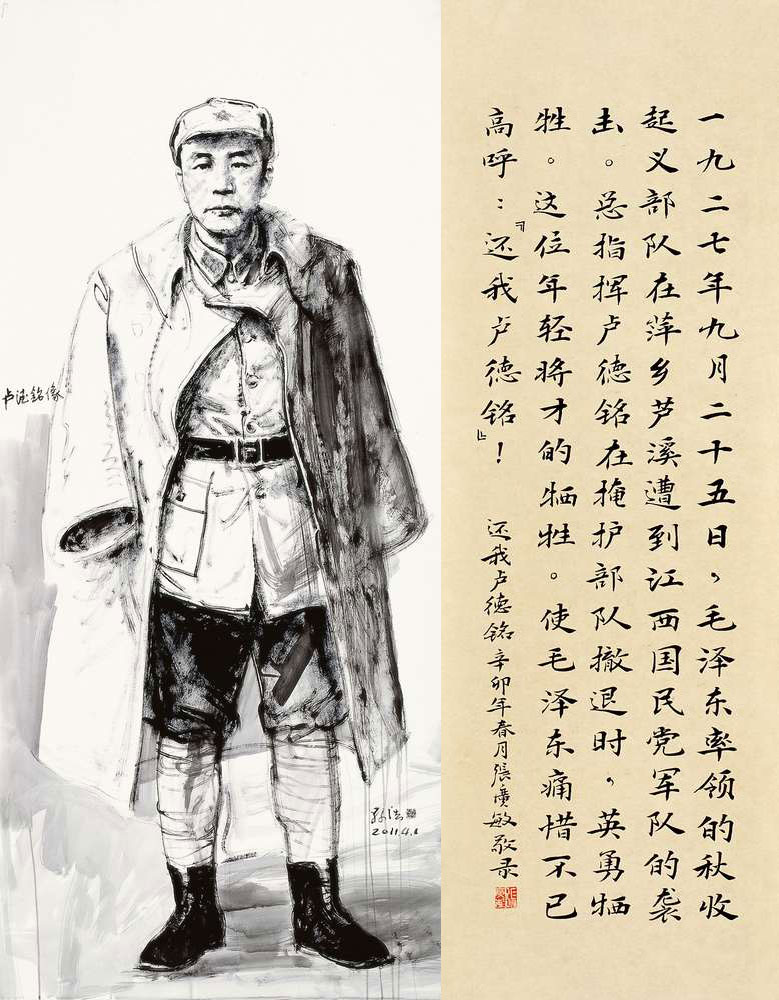 一九二七年九月二十五日，毛泽东率领的秋收
起义部队在萍乡芦溪遭到江西国民党军队的袭
击。总指挥卢德铭在掩护部队撤退时，英勇牺
牲。这位年轻将才的牺牲。使毛泽东痛惜不已
高呼：『还我卢德铭！』
还我卢德铭辛卯年春月張廣敏敬录
卢德銘像